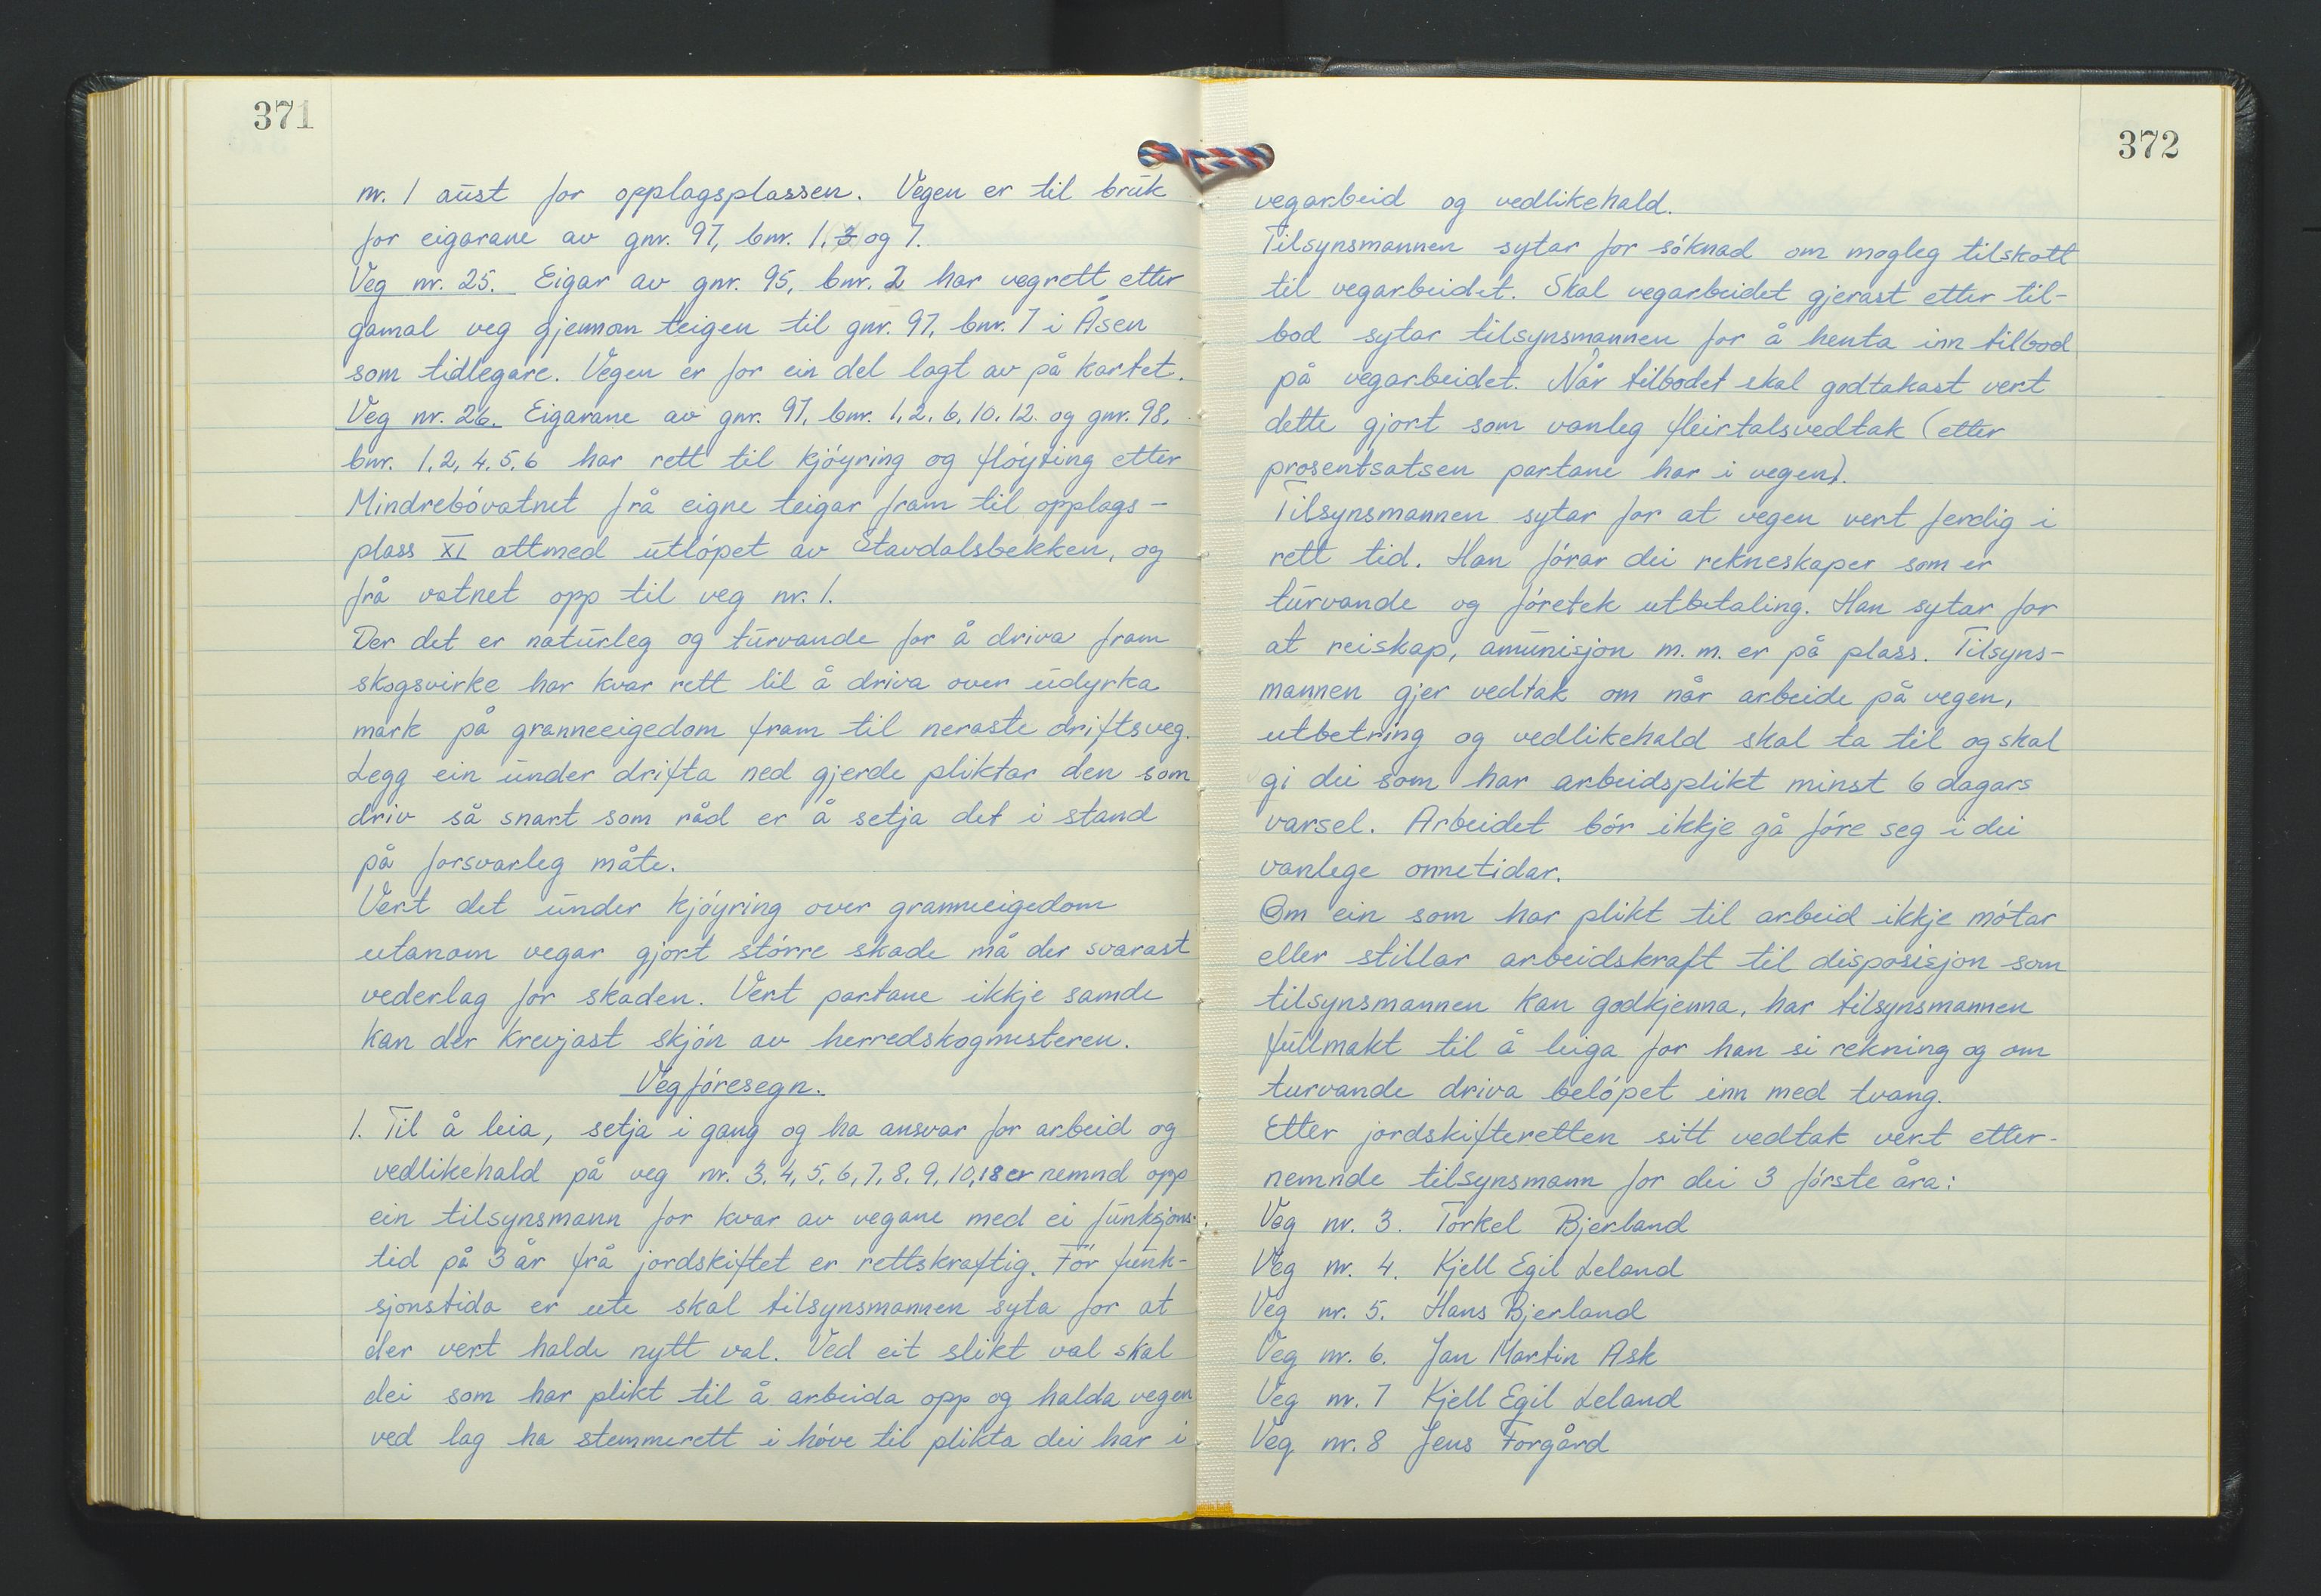 371
nr. 1 aust for opplagsplassen. Vegen er til bruk
for eigarane av gnr. 97, bnr. 1, 3 og 7.
Veg nr. 25. Eigar av gnr. 95, bnr. 2 har vegrett etter
gamal veg gjennom teigen til gnr. 97, bnr. 7 i Åsen
som tidlegare. Vegen er for ein del lagt av på kartet.
Veg nr. 26. Eigarane av gnr. 97, bnr. 1, 2, 6, 10, 12. og gnr. 98,
bnr. 1, 2, 4, 5, 6 har rett til kjóyring og flóyting etter
Mindrebóvatnet frå eigne teigar fram til opplags-
plass XI attmed utlópet av Stavdalsbekken, og
frå vatnet opp til veg nr. 1.
Der det er naturleg og turvande for å driva fram
skogsvirke har kvar rett til å driva over udyrka
mark på granneeigedom fram til neraste driftsveg.
Legg ein under drifta ned gjerde pliktar den som
driv så snart som råd er å setja det i stand
på forsvarleg måte.
Vert det under kjóyring over granneeigedom
utanom vegar gjort stórre skade må der svarast
vederlag for skaden. Vert partane ikkje samde
kan der krevjast skjón av herredskogmesteren.
Vegfóresegn.
1. Til å leia, setja i gang og ha ansvar for arbeid og
vedlikehald på veg nr. 3, 4, 5, 6, 7, 8, 9, 10, 18 er nemnd opp
ein tilsynsmann for kvar av vegane med ei funksjons-
tid på 3 år frå jordskiftet er rettskraftig. Fór funk-
sjonstida er ute skal tilsynsmannen syta for at
der vert halde nytt val. Ved eit slikt val skal
dei som har plikt til å arbeida opp og halda vegen
ved lag ha stemmerett i hóve til plikta dei har i
372
vegarbeid og vedlikehald.
Tilsynsmannen sytar for sóknad om mogleg tilskott
til vegarbeidet. Skal vegarbeidet gjerast etter til-
bod sytar tilsynsmannen for å henta inn tilbod
på vegarbeidet. Når tilbodet skal godtakast vert
dette gjort som vanleg fleirtalsvedtak (etter
prosentsatsen partane har i vegen).
Tilsynsmannen sytar for at vegen vert ferdig i
rett tid. Han fórar dei rekneskaper som er
turvande og fóretek utbetaling. Han sytar for
at reiskap, amunisjon m. m. er på plass. Tilsyns-
mannen gjer vedtak om når arbeide på vegen,
utbetring og vedlikehald skal ta til og skal
gi dei som har arbeidsplikt minst 6 dagars
varsel. Arbeidet bór ikkje gå fóre seg i dei
vanlege onnetidar.
Om ein som har plikt til arbeid ikkje mótar
eller stillar arbeidskraft til disposisjon som
tilsynsmannen kan godkjenna, har tilsynsmannen
fullmakt til å leiga for han si rekning og om
turvande driva belópet inn med tvang.
Etter jordskifteretten sitt vedtak vert etter-
nemnde tilsynsmann for dei 3 fórste åra:
Veg nr. 3. Torkel Bjerland
Veg nr. 4. Kjell Egil Leland
Veg nr. 5. Hans Bjerland
Veg nr. 6. Jan Martin Ask
Veg nr. 7 Kjell Egil Leland
Veg nr. 8 Jens Forgård